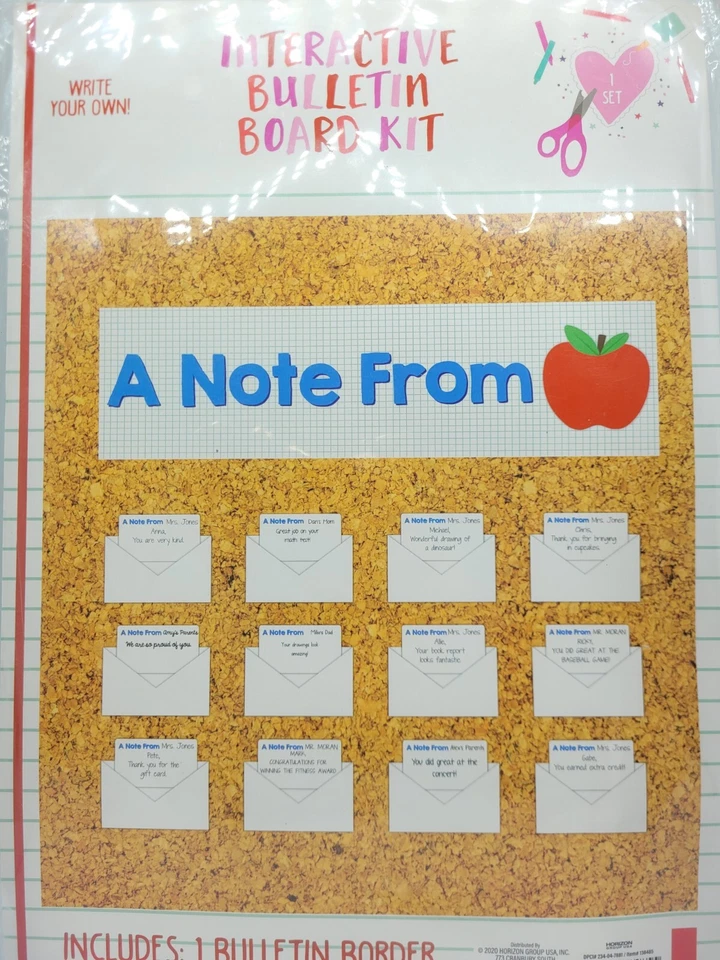 WRITE
YOUR OWN!
INTERACTIVE
BULLETIN
BOARD KIT
1
SET
A Note From
A Note From Mrs. Jones
Anna,
You are very kind.
A Note From Dan's Mom
Great job on your
math test
A Note From Mrs. Jones
Michael,
Wonderful drawing of
a dinosaur!
A Note From Mrs. Jones
Chris,
Thank you for bringing
in cupcakes.
A Note From Amy's Parents
We are so proud of you.
A Note From Mike's Dad
Your drawings look
amazing!
A Note From Mrs. Jones
Allie,
Your book report
looks fantastic.
A Note From MR. MORAN
RICKY,
YOU DID GREAT AT THE
BASEBALL GAME!
A Note From Mrs. Jones
Pete,
Thank you for the
gift card.
A Note From MR. MORAN
MARK,
CONGRATULATIONS FOR
WINNING THE FITNESS AWARD
A Note From Alex's Parents
You did great at the
concert!
A Note From Mrs. Jones
Gabe,
You earned extra credit!
INCLUDES: 1 BULLETIN BORDER
Distributed by
© 2020 HORIZON GROUP USA, INC.
773 CRANBURY SOUTH
HORIZON
GROUP USA